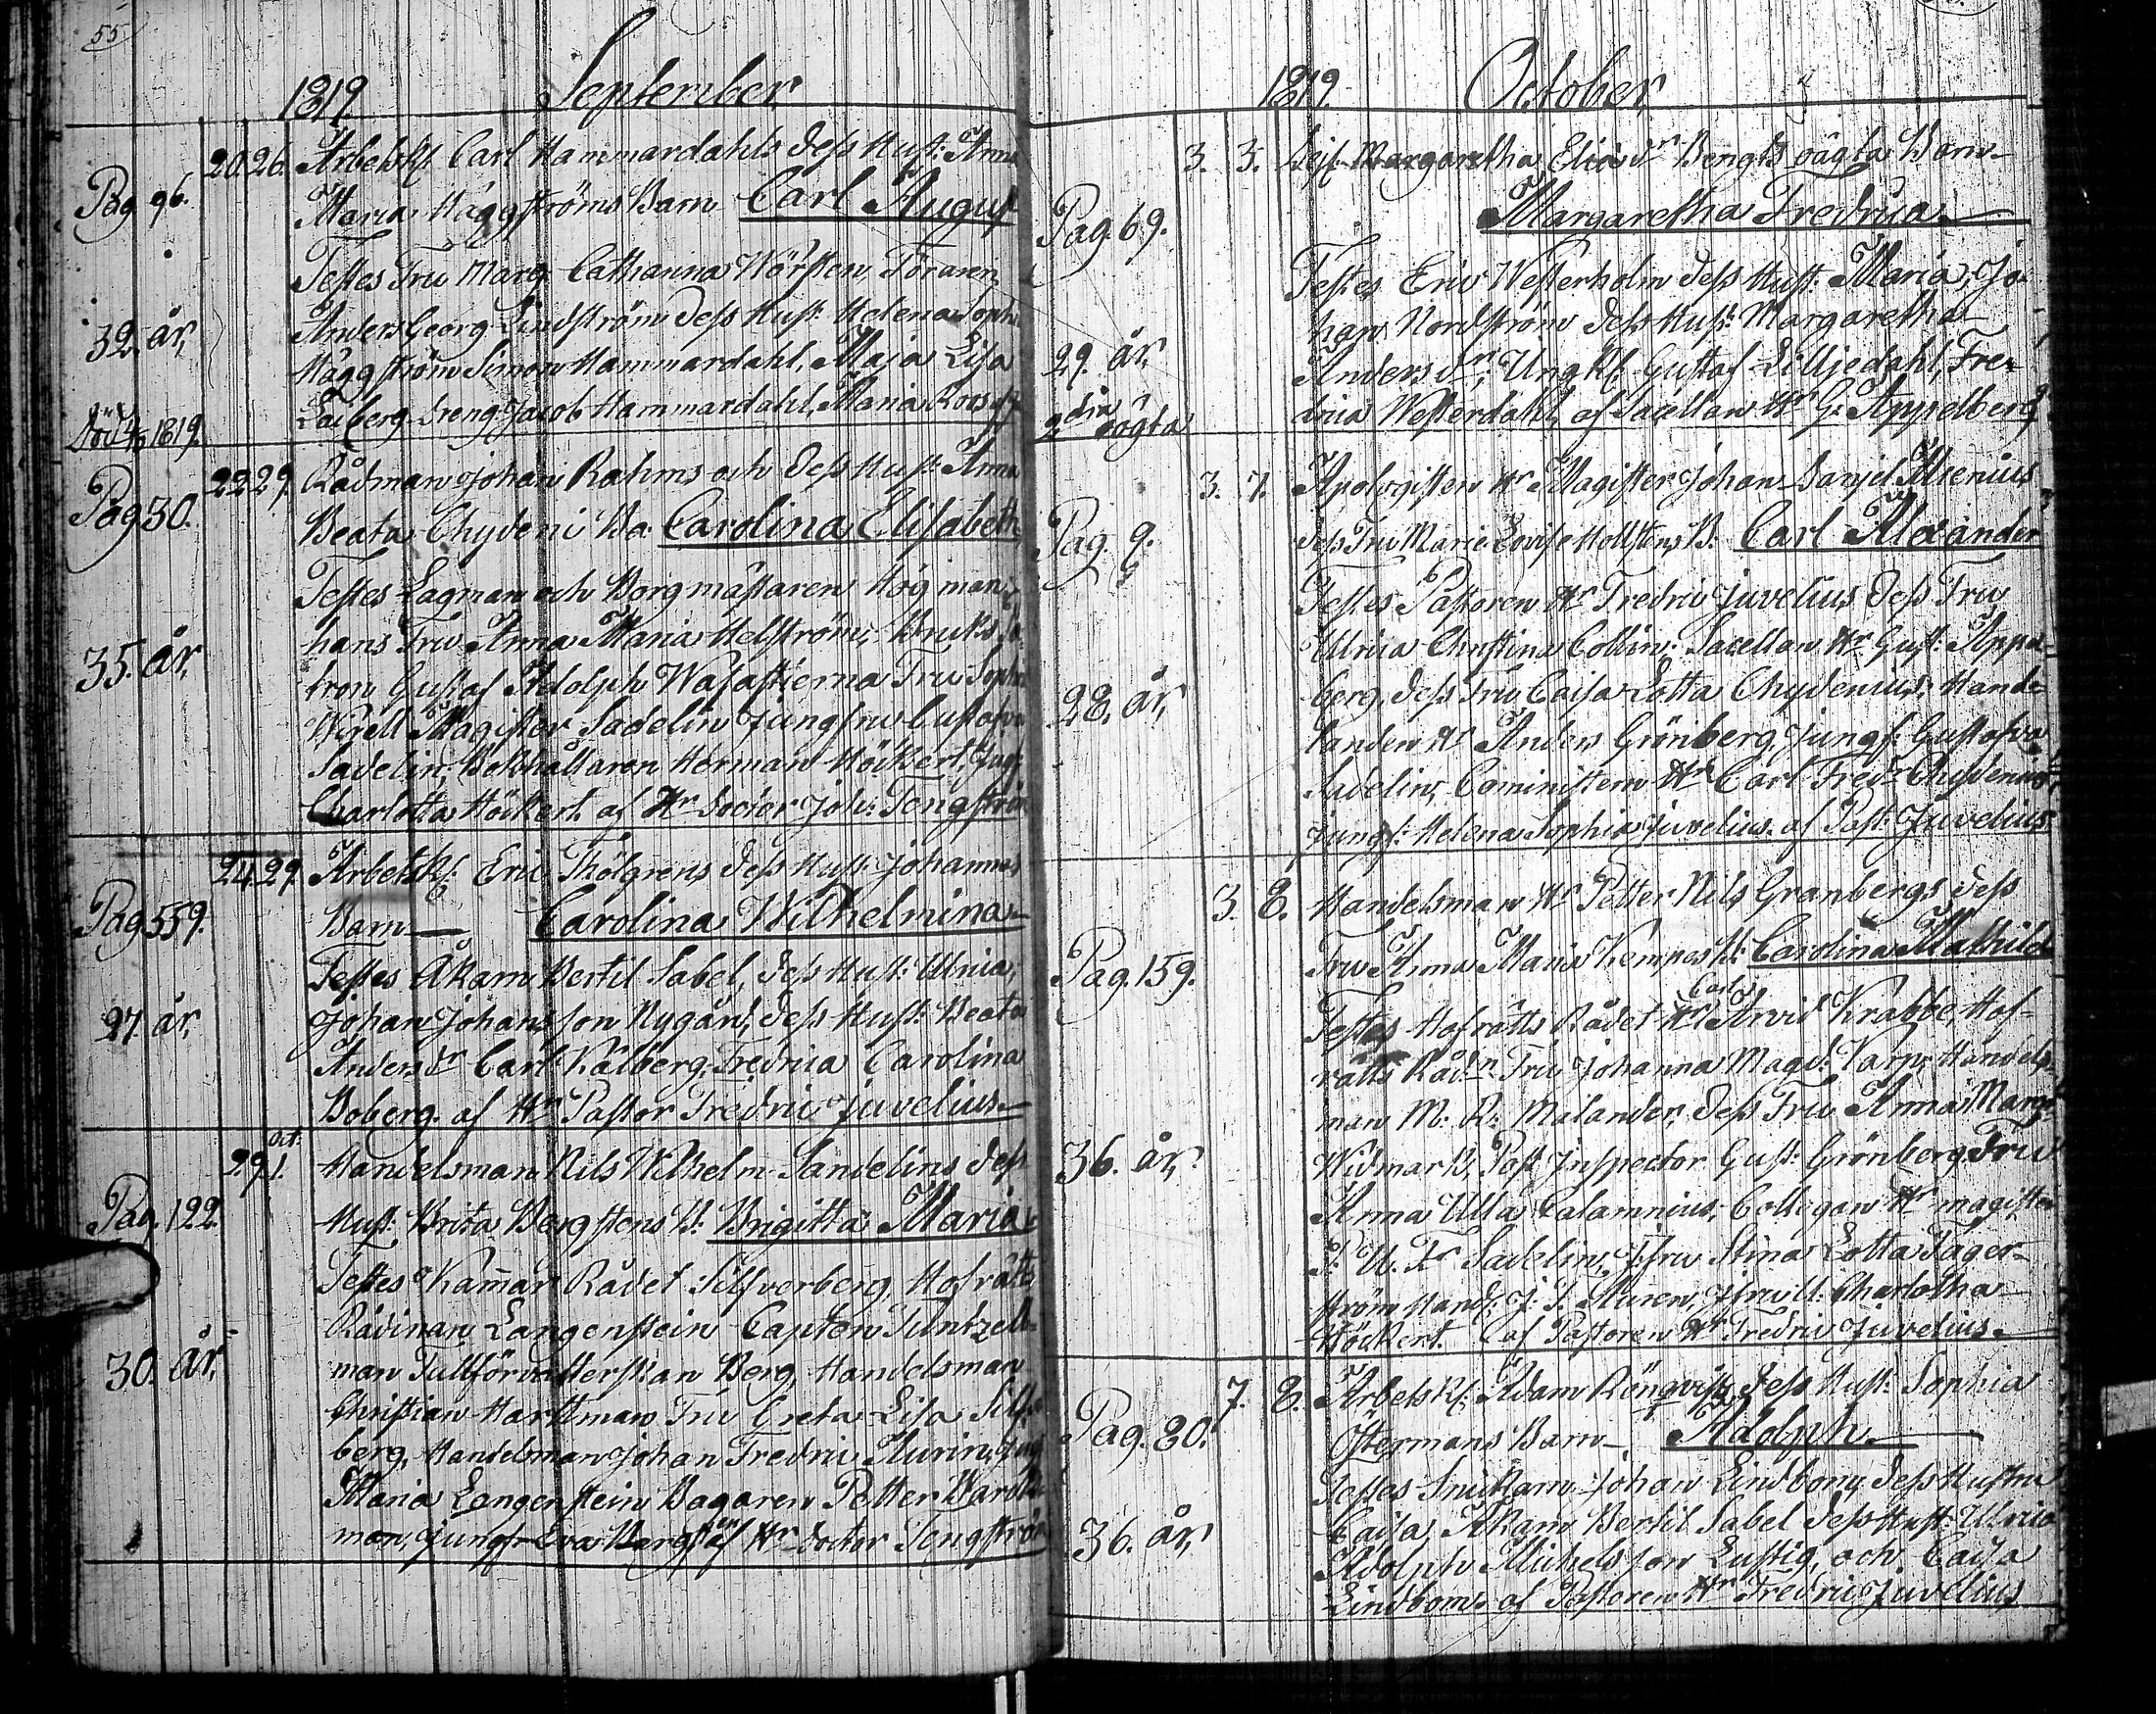 55
1819. September
Pag 96.
32. år,
Död 4/10 1819.
20. 26. Arbetsk: Carl Hammardahls dess Hust: Anna
Maria Häggströms Barn Carl August
Testes Fru Marg: Catharina Wörsten, Föraren
Anders Georg Lindström dess Hust: Helena Sophi
Häggström Simon Hammardahl, Maja Lisa
Dreng Jacob Hammardahl, Maria Roos af
Pag 30.
35. år,
22 29. Rådman Johan Rahms och dess Hust: Anna
Beata Chydeni Ba: Carolina Elisabeth
Testes Lagman och Borgmästaren Högman,
hans Fru Anna Maria Helström, Bruks Pa
tron Gustaf Adolph Wasastierna Fru Sophi
Magister Sadelin Jungfru Gustafva
Sadelin, Bokhållaren Herman Höckert, Jungf:
Charlotta Höckert. af Hr Doctor Joh: Tengström
Pag 559.
27. år,
24. 29. Arbetsk: Eric Thölgrens dess Hust: Johannas
Barn — Carolina Wilhelmina —
Testes Åkarn Bertil Sabel, dess Hust: Ulrica,
Johan Johansson Nygård, dess Hust: Beata
Anders dr Carl Kålberg, Fredrica Carolina
Boberg. af Hr Pastor Fredric Juvelius —
Pag. 122.
30. år,
Oct:
29. 1. Handelsman Nils Wilhelm Sandelins dess
Hust: Brita Bergstens B: Brigitta Maria
Testes Kammar Rådet Silfverberg, Hofrätts
Rådman Langenstein Capten Tuntzell-
man Tullförvalterskan Berg, Handelsman
Christian Hartman Fru Greta Lisa Silf
berg, Handelsman Johan Fredric Aurin, Jungf
Maria Langenstein Bagaren Petter Backo
man, Jungf Eva Bergsten af Hr Doctor Tengström
1819. October
Pag. 69.
29. år,
2dra oägta
3. 5. Margaretha Erics dr Bengts oägta Barn
Margaretha Fredrica —
Testes Eric Westerholm dess Hust: Maria, Jo-
han Nordström dess Hust: Margaretha
Anders dr, Ungk: Gustaf Lilljedahl, Fre-
drica Westerdahl, af Sacellan Hr G: Appelberg
Pag. 9.
28. år,
3. 7. Apologisten Hr Magister Johan Danjel Alcenius
dess Fru Marie Lovise Hollstens B: Carl Alexander
Testes Pastoren Hr Fredric Juvelius dess Fru
Ulrica Christina Collin: Sacellan Hr Gust: Appel-
berg, dess Fru Caisa Lotta Chydenius, Hande-
landen Hr Anders Grönberg, Jungf: Gustafva
Sadelin, Cominister Hr Carl Fredr: Chydenius
Jungf: Helena Sophia Juvelius. af Past: Juvelius
Pag. 159.
36. år,
3. 8. Handelsman Hr Petter Nils Granbergs dess
Fru Anna Maria Kempes B: Carolina Mathilda
Testes Hofrätts Rådet Hr Carl Arvid Krabbe, Hof-
rätts Råd:n Fru Johanna Magd: Karp, Handels-
man M: R: Malander, dess Fru Anna Marg:
Widmark, Post Inspector Gust: Grönberg Fru
Anna Ulla Calamnius, Collegan Hr magister
Sadelin, Jfru Stina Lotta Fager-
ström Hand: J: F: Auren, Jfru U: Charlotha
Höckert. af Pastoren Hr Fredric Juvelius.
Pag. 80.
36. år,
7. 8. Arbetsk: Adam Rönqvists dess Hust: Sophia
Östermans Barn — Adolph —
Testes Snickarn Johan Lindbom, dess Hustru
Caisa, Åkarn Bertil Sabel dess Hust: Ulrica
Adolph Michelsson Lustig, och Caisa
Lindbom. af Pastoren Hr Fredric Juvelius